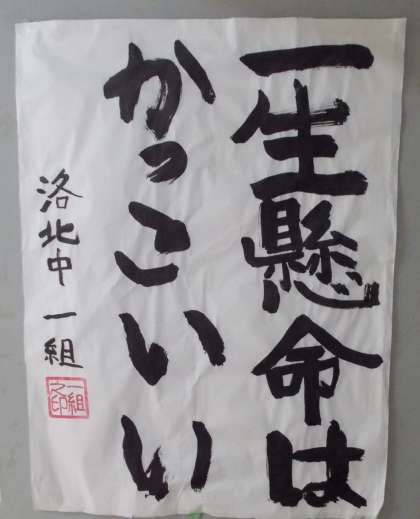 一生懸命は
かっこいい
洛北中 一組
一組之印